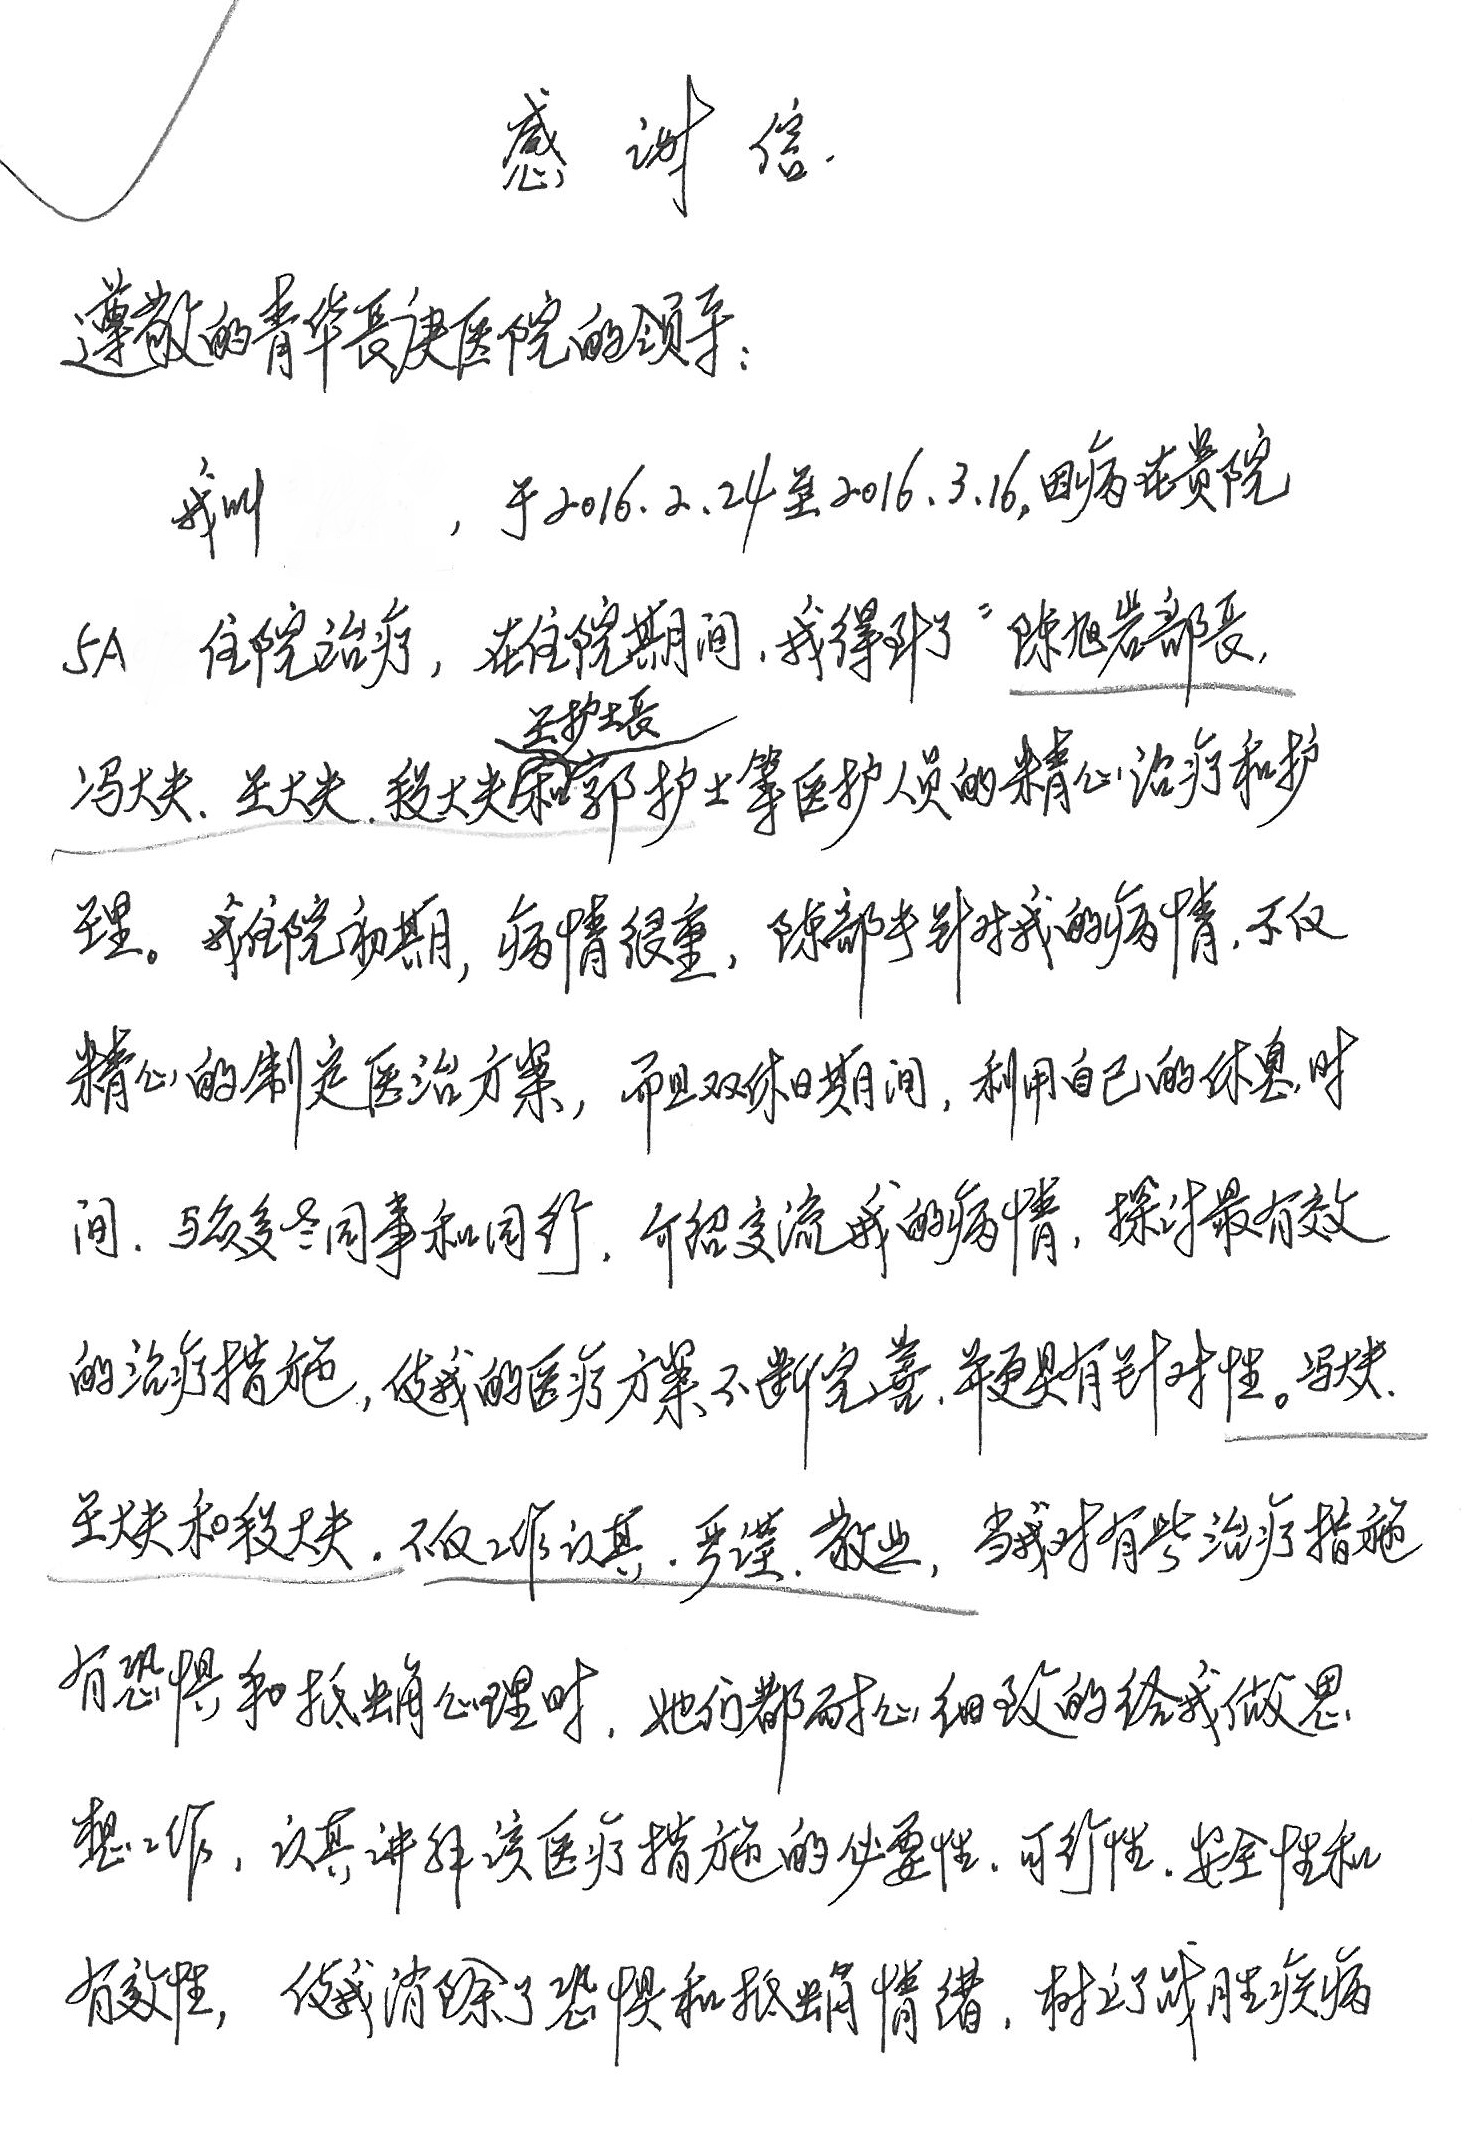 感谢信.
尊敬的青华长庚医院的领导:
我叫 ,于2016.2.24至2016.3.16,因病在贵院
5A 住院治疗,在住院期间,我得到了“陈旭岩部长,
王护士长
冯大夫、王大夫、段大夫和郭护士等医护人员的精心治疗和护
理。我住院初期,病情很重,陈部长针对我的病情,不仅
精心的制定医治方案,而且双休日期间,利用自己的休息时
间、与众多同事和同行,介绍交流我的病情,探讨最有效
的治疗措施,使我的医疗方案不断完善,并更具有针对性。冯大夫、
王大夫和段大夫,不仅工作认真、严谨、敬业,当我对有些治疗措施
有恐惧和抵触心理时,她们都耐心细致的给我做思
想工作,认真讲解该医疗措施的必要性、可行性、安全性和
有效性,使我消除了恐惧和抵触情绪,树立了战胜疾病